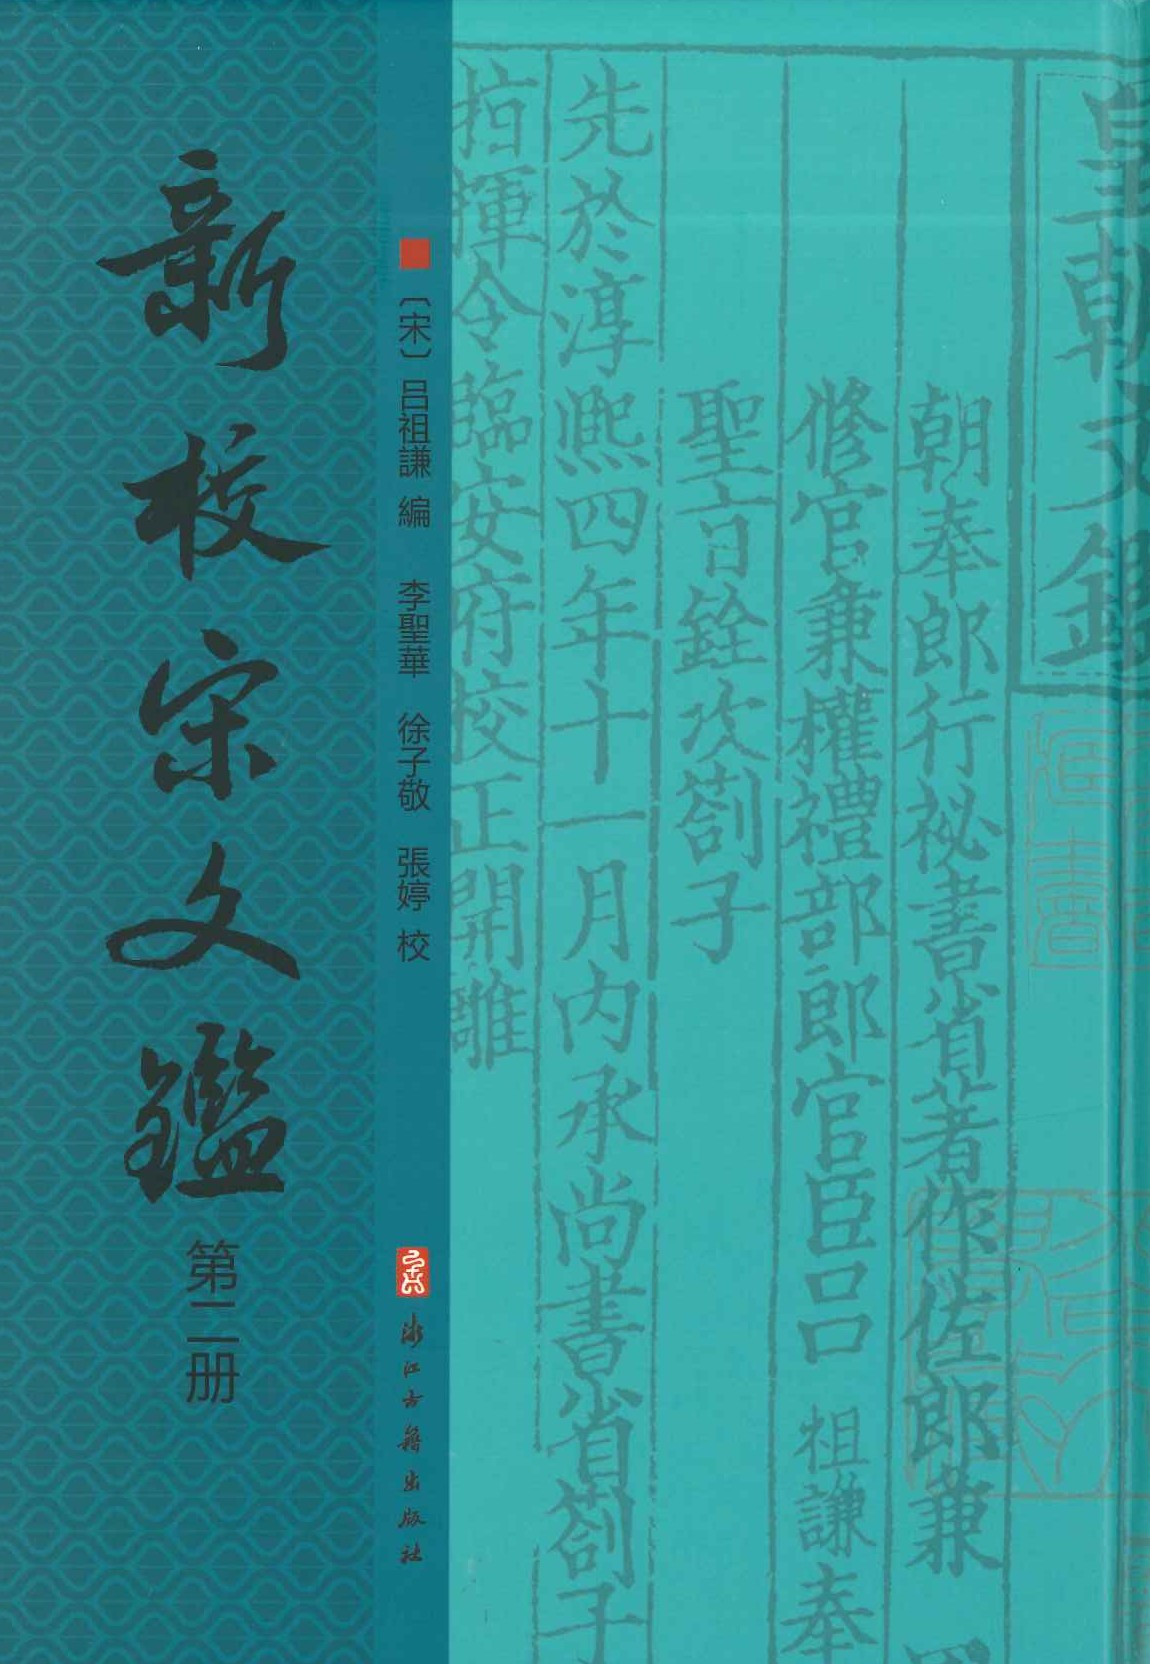 新校宋文鑑
第二册
〔宋〕吕祖謙 編 李聖華 徐子敬 張婷 校
浙江古籍出版社
皇朝文鑑
朝奉郎行祕書省著作佐郎兼
修官兼權禮部郎官臣吕祖謙奉
聖旨銓次劄子
先於淳熙四年十一月内承尚書省劄子
指揮令臨安府校正開雕